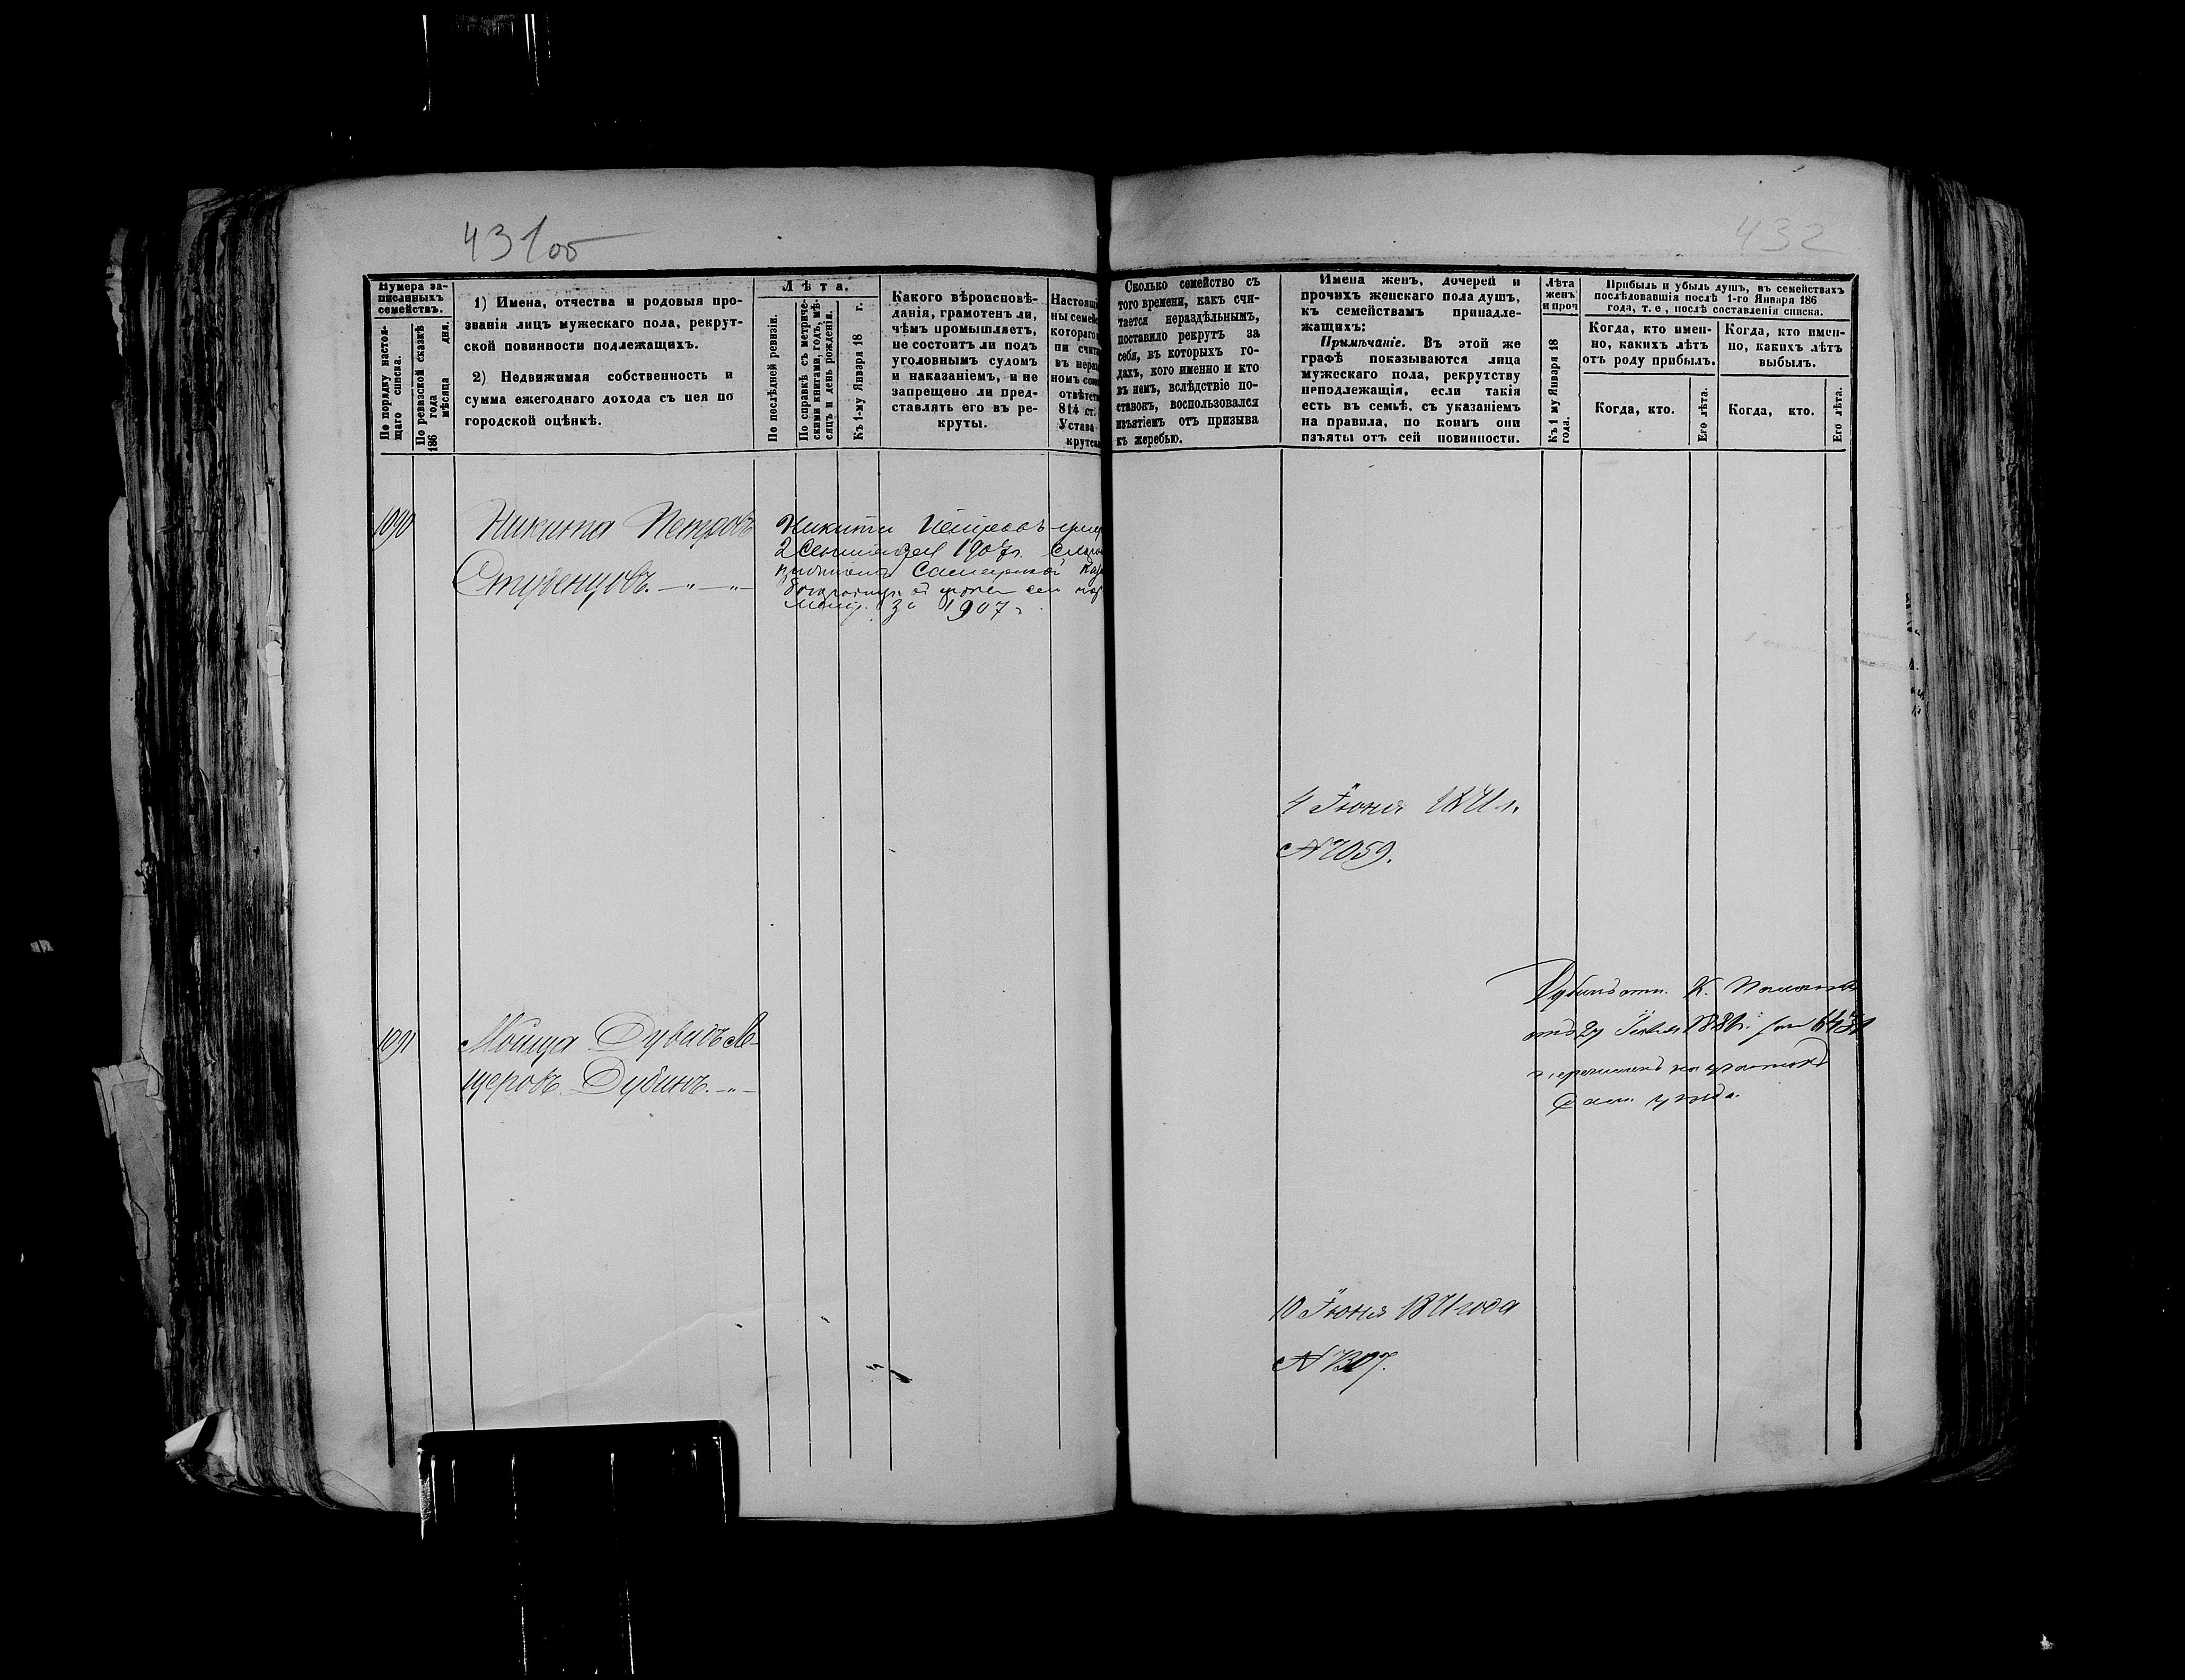 431об
Нумера за-
писанныхъ
семействъ.
По порядку настоя-
щаго списка.
По ревизской сказкѣ
186 года мѣсяца дня.
1) Имена, отчества и родовыя про-
званія лицъ мужескаго пола, рекрут-
ской повинности подлежащихъ.
2) Недвижимая собственность и
сумма ежегоднаго дохода съ нея по
городской оцѣнкѣ.
Лѣта.
По послѣдней ревизіи.
По справкѣ съ метриче-
скими книгами, годъ, мѣ-
сяцъ и день рожденія.
Къ 1-му Января 18 г.
Какого вѣроисповѣ-
данія, грамотенъ ли,
чѣмъ промышляетъ,
не состоитъ ли подъ
уголовнымъ судомъ
и наказаніемъ, и не
запрещено ли пред-
ставлять его въ ре-
круты.
Настоящ
ны семей
котораго
ни счит
въ нераз
номъ сос
отвѣтств
814 ст.
Устава
крутск
1090
Никита Петровъ
Студенцовъ. —„— —„—
Никита Петровъ
2 Сентября 1907г.
Самарской
за 1907г.
1091
Мовша Дувидъ Ле-
щеровъ Дубинъ. —„—
432
Сколько семейство съ
того времени, какъ счи-
тается нераздѣльнымъ,
поставило рекрутъ за
себя, въ которыхъ го-
дахъ, кого именно и кто
въ немъ, вслѣдствіе по-
ставокъ, воспользовался
изъятіемъ отъ призыва
къ жеребью.
Имена женъ, дочерей и
прочихъ женскаго пола душъ,
къ семействамъ принадле-
жащихъ:
Примѣчаніе. Въ этой же
графѣ показываются лица
мужескаго пола, рекрутству
неподлежащія, если такія
есть въ семьѣ, съ указаніемъ
на правила, по коимъ они
изъяты отъ сей повинности.
Лѣта
женъ
и проч
Къ 1 му Января 18
года.
Прибыль и убыль душъ, въ семействахъ
послѣдовавшія послѣ 1-го Января 186
года, т. е., послѣ составленія списка.
Когда, кто имен-
но, какихъ лѣтъ
отъ роду прибылъ.
Когда, кто имен-
но, какихъ лѣтъ
выбылъ.
Когда, кто.
Его лѣта.
Когда, кто.
Его лѣта.
4 Іюня 1871г.
№ 7059.
Дубинъ К.
отъ 27 1886г.
перечисленъ
уѣзда.
10 Іюня 1871 года
№ 7307.